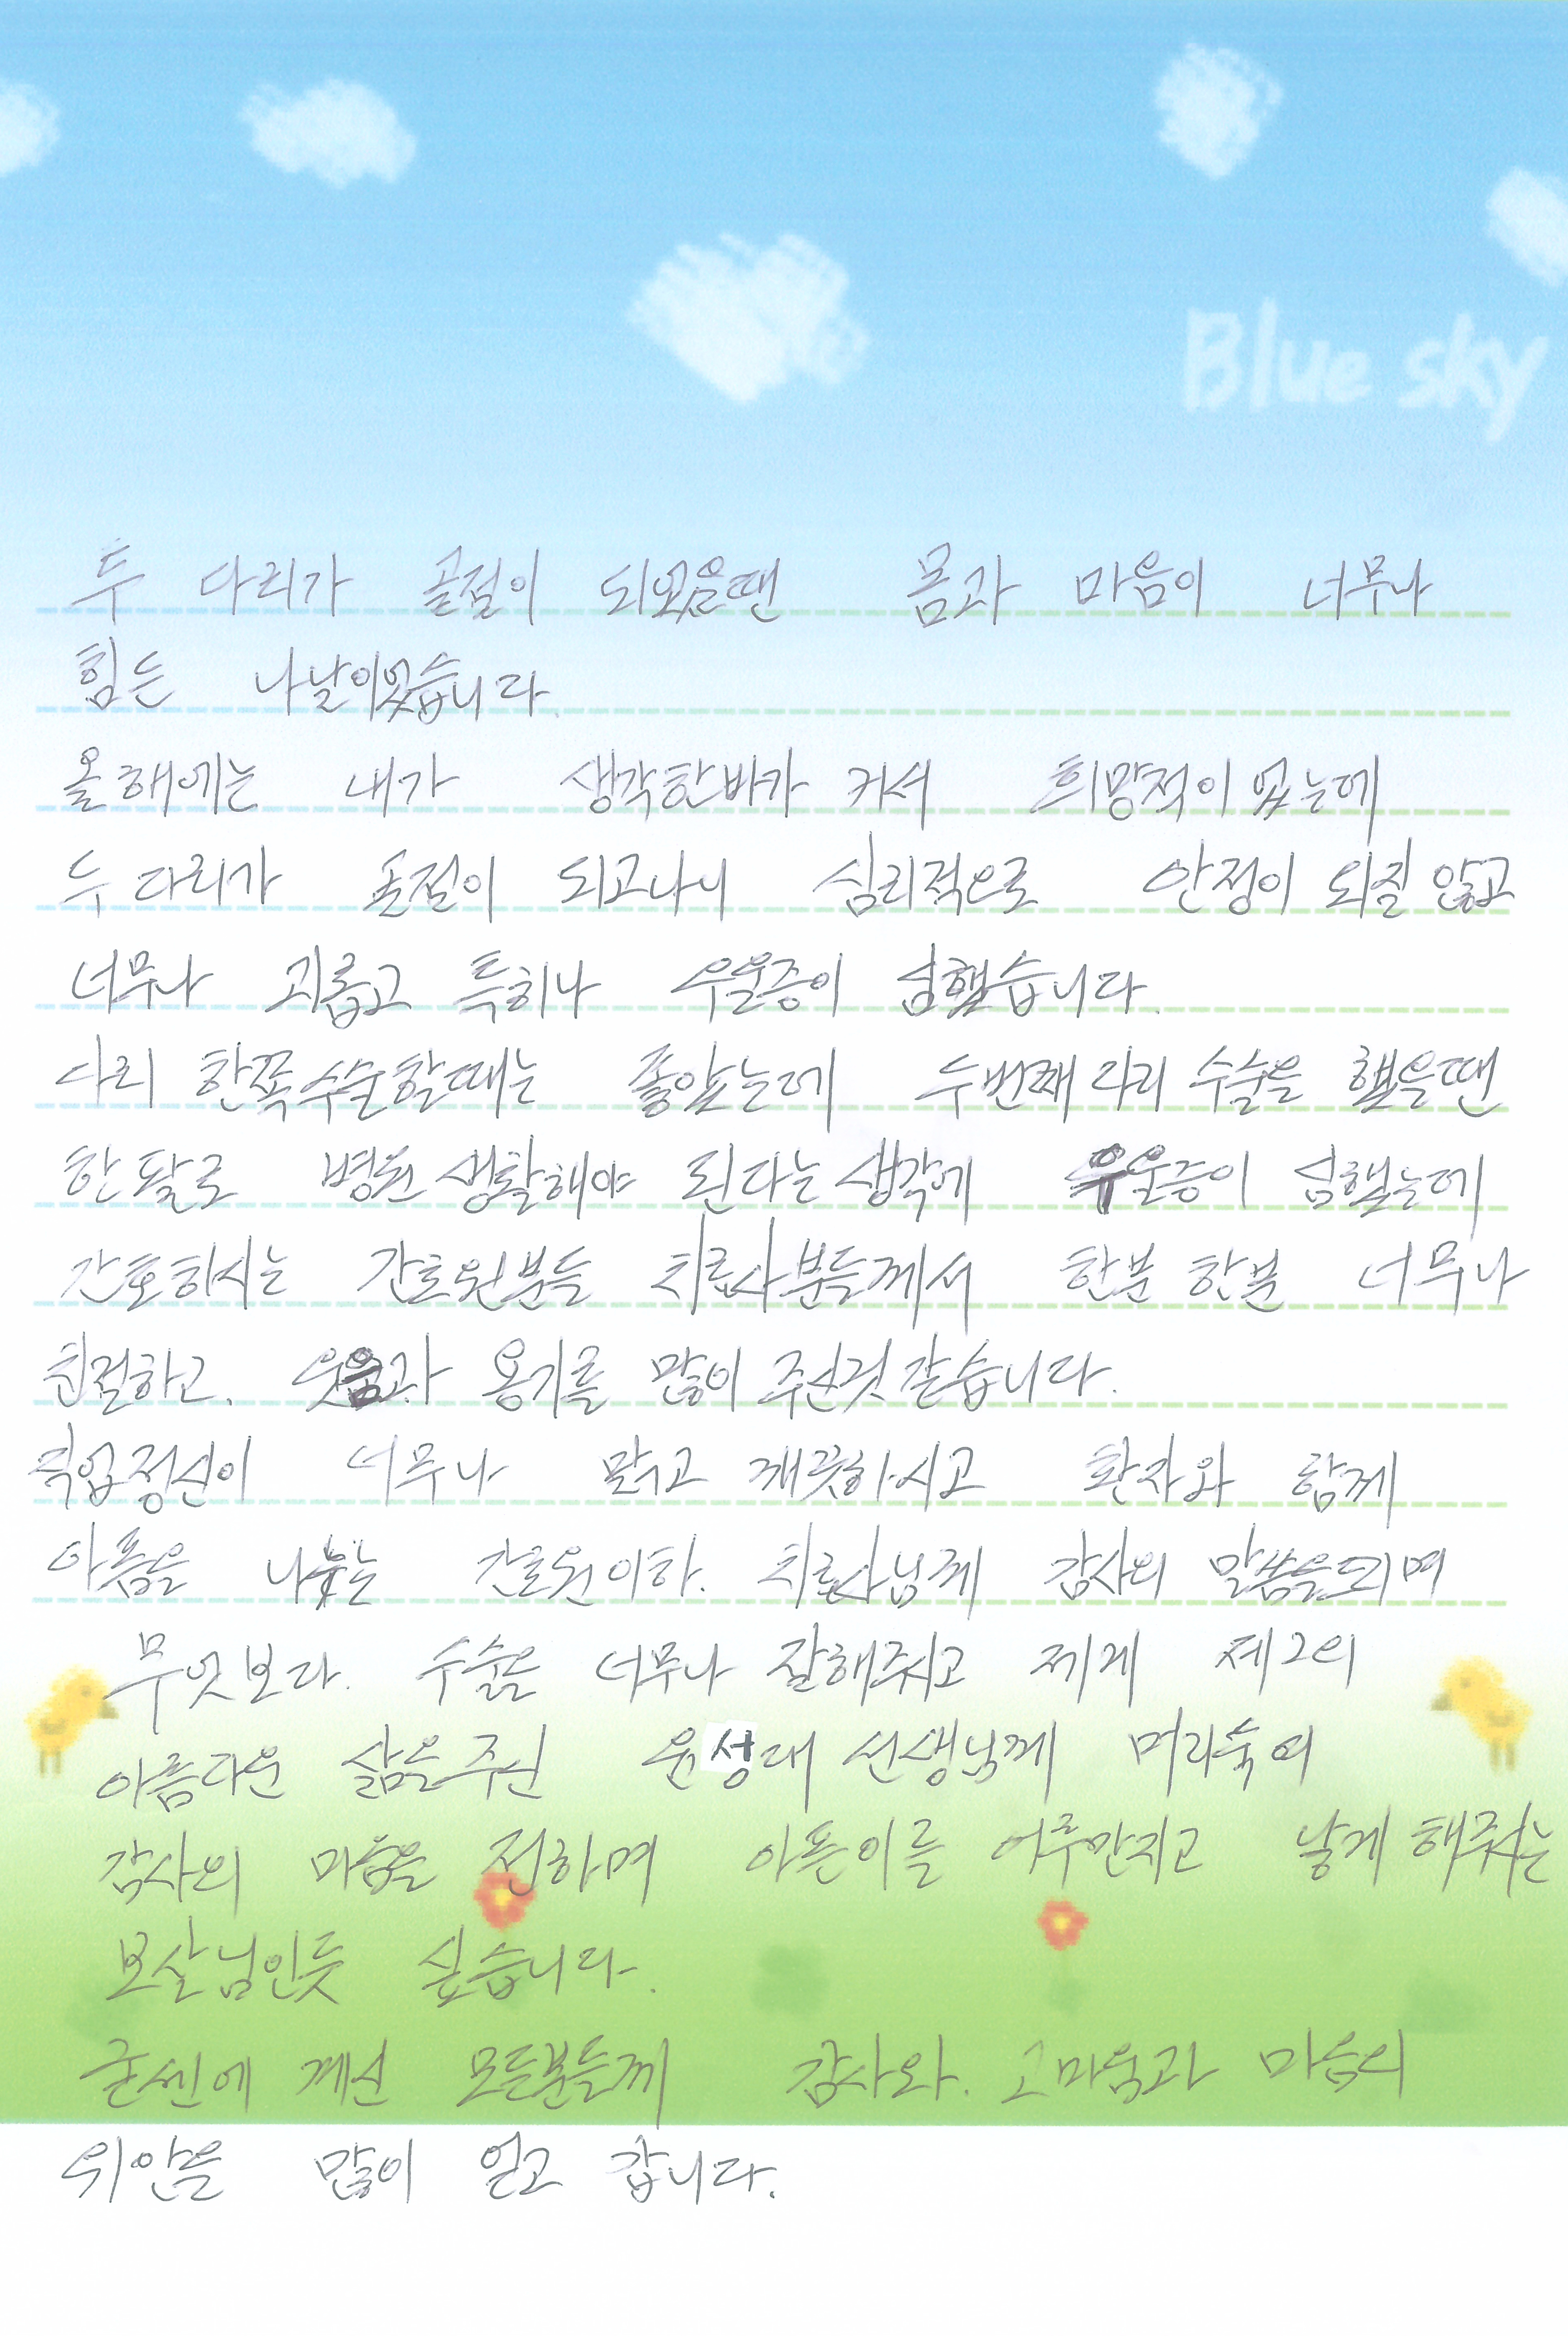 Blue sky
두 다리가 골절이 되었을땐 몸과 마음이 너무나
힘든 나날이었습니다.
올해에는 내가 생각한바가 커서 희망적이 었는데
두 다리가 골절이 되고나니 심리적으로 안정이 되질 않고
너무나 괴롭고 특히나 우울증이 심했습니다.
다리 한쪽 수술할때는 좋았는데 두번째 다리 수술을 했을땐
한달로 병원 생활해야 된다는 생각에 우울증이 심했는데
간호하시는 간호원분들 치료사분들께서 한분 한분 너무나
친절하고. 웃음과 용기를 많이 주신것 같습니다.
직업정신이 너무나 맑고 깨끗하시고 환자와 함께
아픔을 나누는 간호원이하. 치료사님께 감사의 말씀을드리며
무엇보다. 수술을 너무나 잘해주시고 제게 제2의
아름다운 삶을 주신 윤성대 선생님께 머리숙여
감사의 마음을 전하며 아픈이를 어루만지고 낳게 해주시는
보살님인듯 싶습니다.
굳센에 계신 모든분들께 감사와. 고마움과 마음의
위안을 많이 얻고 갑니다.